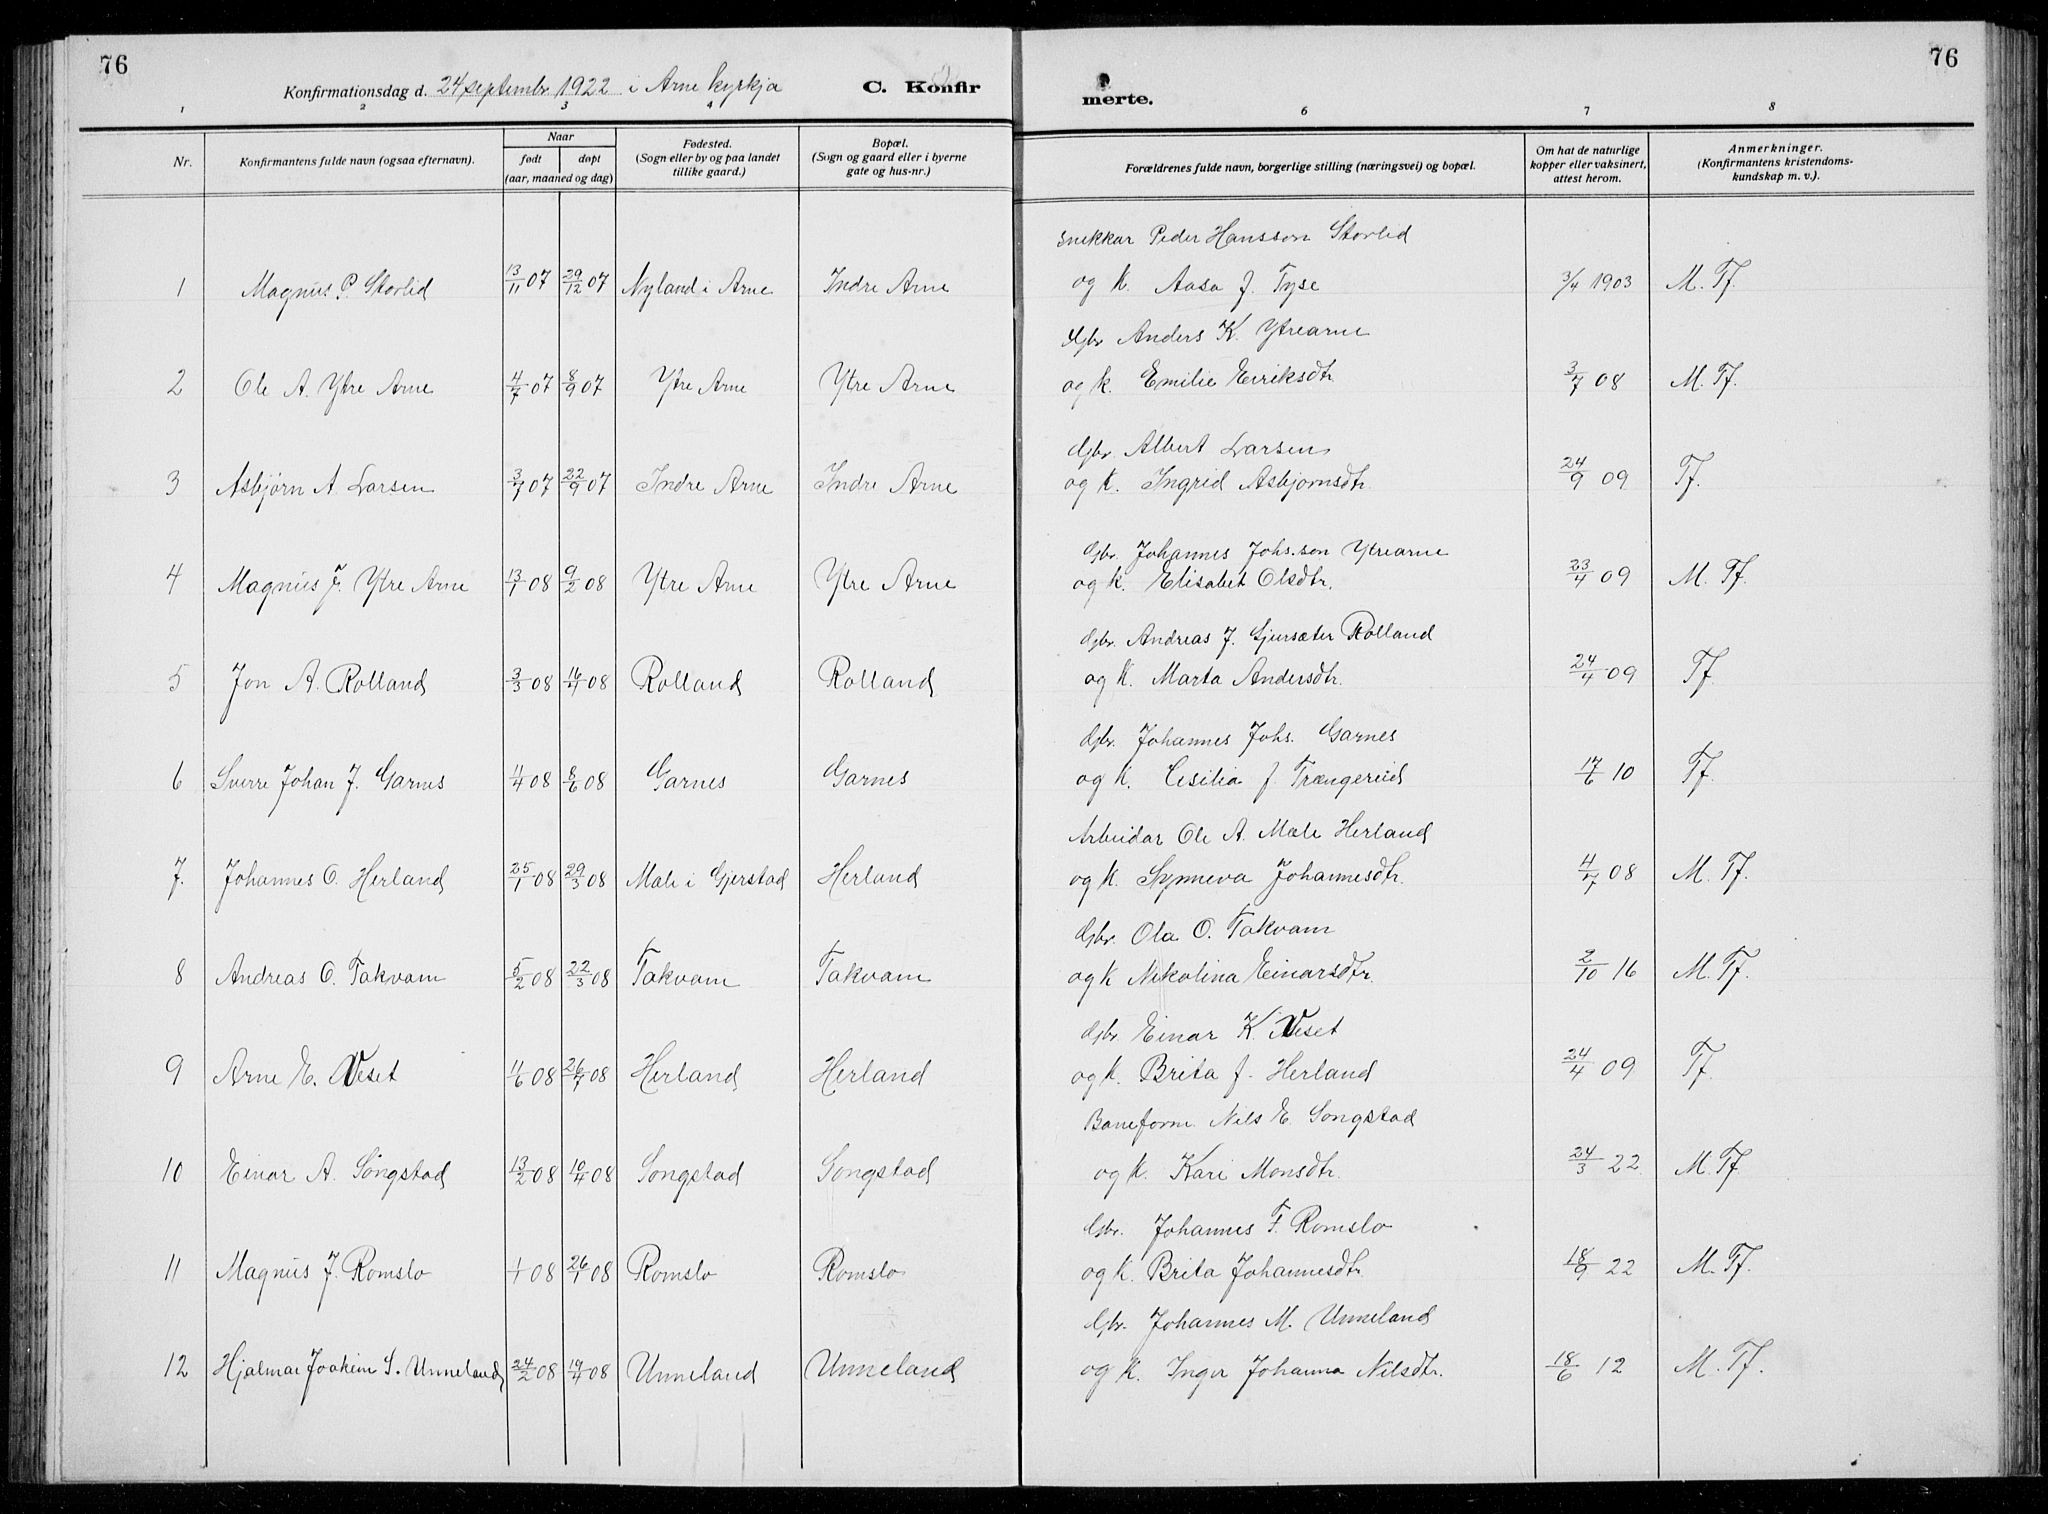 76
76
Konfirmationsdag d. 24 septembr 1922 i Arne kyrkja
C. Konfir
merte.
1 2 3 4 6 7 8
Nr.
Konfirmantens fulde navn (ogsaa efternavn).
Naar
født døpt
(aar, maaned og dag)
Fødested.
(Sogn eller by og paa landet
tillike gaard.)
Bopæl.
(Sogn og gaard eller i byerne
gate og hus-nr.)
Forældrenes fulde navn, borgerlige stilling (næringsvei) og bopæl.
Om hat de naturlige
kopper eller vaksinert,
attest herom.
Anmerkninger.
(Konfirmantens kristendoms-
kundskap m. v.).
Snekkar Peder Hansson Storlid
1 Magnus P. Storlid 13/11 07 29/12 07 Nyland i Arne Indre Arne og k. Aasa f. Tyse 3/4 1903 M. Tf.
Gbr. Anders K. Ytrearne
2 Ole A. Ytre Arne 4/7 07 8/9 07 Ytre Arne Ytre Arne og k. Emilie Eiriksdtr. 3/7 08 M. Tf.
Gbr. Albert Larsen
3 Asbjørn A. Larsen 3/7 07 22/9 07 Indre Arne Indre Arne og k. Ingrid Asbjørnsdtr. 24/9 09 Tf.
Gbr. Johannes Johs.son Ytrearne
4 Magnus J. Ytre Arne 13/1 08 9/2 08 Ytre Arne Ytre Arne og k. Elisabet Olsdtr. 23/4 09 M. Tf.
Gbr. Andreas J. Gjersæter Rolland
5 Jon A. Rolland 3/3 08 16/4 08 Rolland Rolland og k. Marta Andersdtr. 24/4 09 Tf.
Gbr. Johannes Johs. Garnes
6 Sverre Johan J. Garnes 11/4 08 8/6 08 Garnes Garnes og k. Cesilia f. Trængereid 17/6 10 Tf.
Arbeidar Ole A. Mæle Herland
7. Johannes O. Herland 25/1 08 29/3 08 Mæle i Gjerstad Herland og k. Synneva Johannesdtr. 4/7 08 M. Tf.
Gbr. Ola O. Takvam
8 Andreas O. Takvam 5/2 08 22/3 08 Takvam Takvam og k Nikolina Einarsdtr. 2/10 16 M. Tf.
Gbr. Einar K. Veset
9 Arne E. Veset 11/6 08 26/7 08 Herland Herland og k. Brita f. Herland 24/4 09 Tf.
Baneform. Nils E. Songstad
10 Einar A. Songstad 13/2 08 10/4 08 Songstad Songstad og k. Kari Monsdtr. 24/3 22 M. Tf.
Gbr. Johannes F. Romslo
11 Magnus J. Romslo 1/1 08 26/1 08 Romslo Romslo og k. Brita Johannesdtr. 18/9 22 M. Tf.
Gbr. Johannes M. Unneland
12 Hjalmar Joakim S. Unneland 24/2 08 19/4 08 Unneland Unneland og k. Inger Johanna Nilsdtr. 18/6 12 M. Tf.